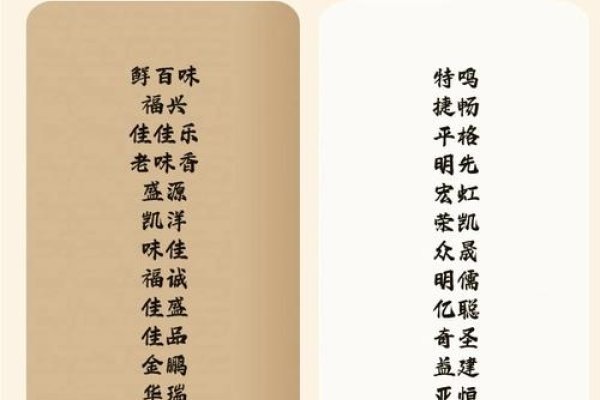 鲜百味
福兴
佳佳乐
老味香
盛源
凯洋
味佳
福诚
佳盛
佳品
金鹏
华瑞
特鸣
捷畅
平格
明先
宏虹
荣凯
众晟
明儒
亿聪
奇圣
益建
亚恒